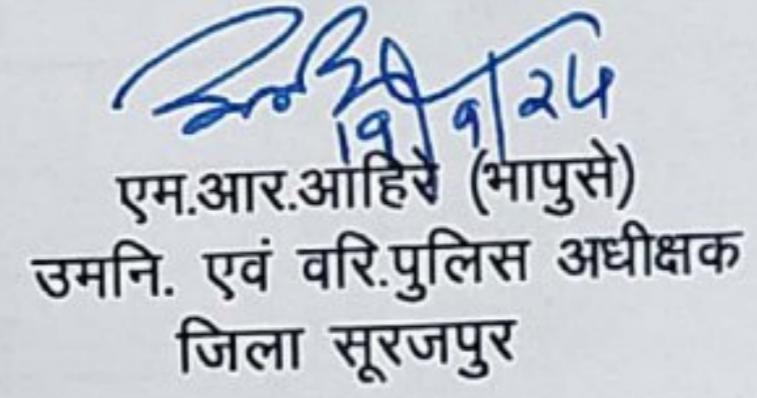 19/9/24
एम.आर.आहिरे (भापुसे)
उमनि. एवं वरि.पुलिस अधीक्षक
जिला सूरजपुर